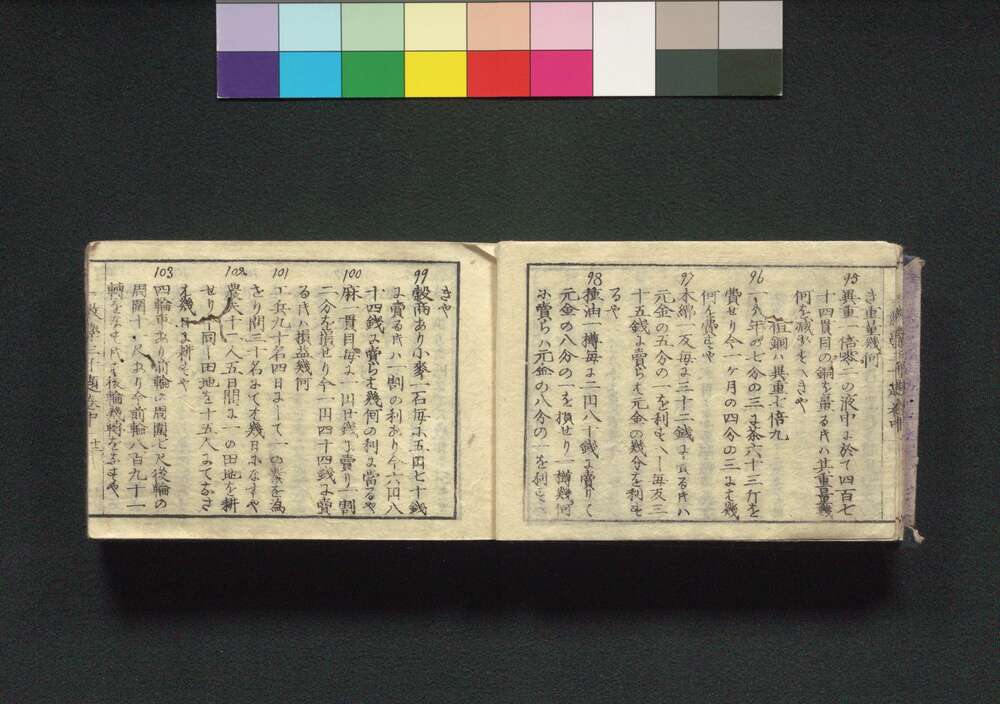 き重量幾何
95
異重一倍零一の液中に於て四百七
十四貫目の銅を量るときハ其重量幾
何を減ずべきや
但銅ハ異重七倍九
96
一ヶ年の七分の三に茶六十三斤を
費せり今一ヶ月の四分の三にて幾
何を費すや
97
木綿一反毎に三十二銭に売るときハ
元金の五分の一を利すべし毎反三
十五銭に賣らば元金の幾分を利す
るや
98
種油一樽毎に二円八十銭に賣りて
元金の八分の一を損せり一樽幾何
に賣らハ元金の八分の一を利す
きや
99
穀商あり小麥一石毎に五円七十銭
に賣るときハ一割の利あり今六円八
十四銭に賣らば幾何の利に當るや
100
麻一貫目毎に一円廿銭に賣り一割
二分を損せり今一円四十四銭に賣
るときハ損益幾何
101
工兵九十名四日にして一の業を為
せり問三十名にてハ幾日になすや
102
農夫十人五日間に一の田地を耕
せり同し田地を十五人にてなさ
ば幾日に耕すや
103
四輪車あり前輪の周圍七尺後輪の
周圍十 尺なり今前輪八百九十一
轉をなすときハ後輪幾轉をなすや